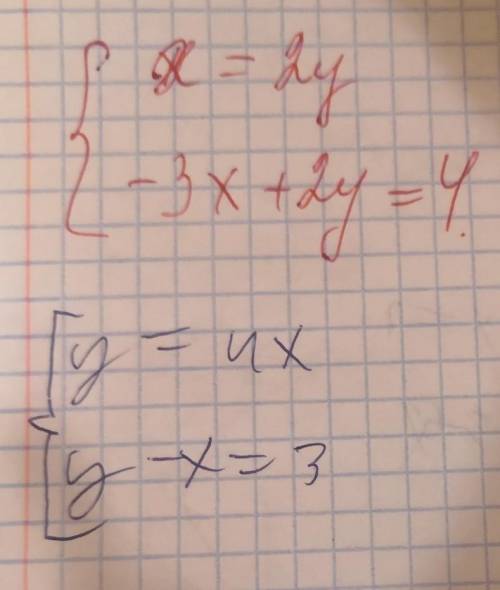 x = 2y
-3x + 2y = 4.
y = 4x
y - x = 3